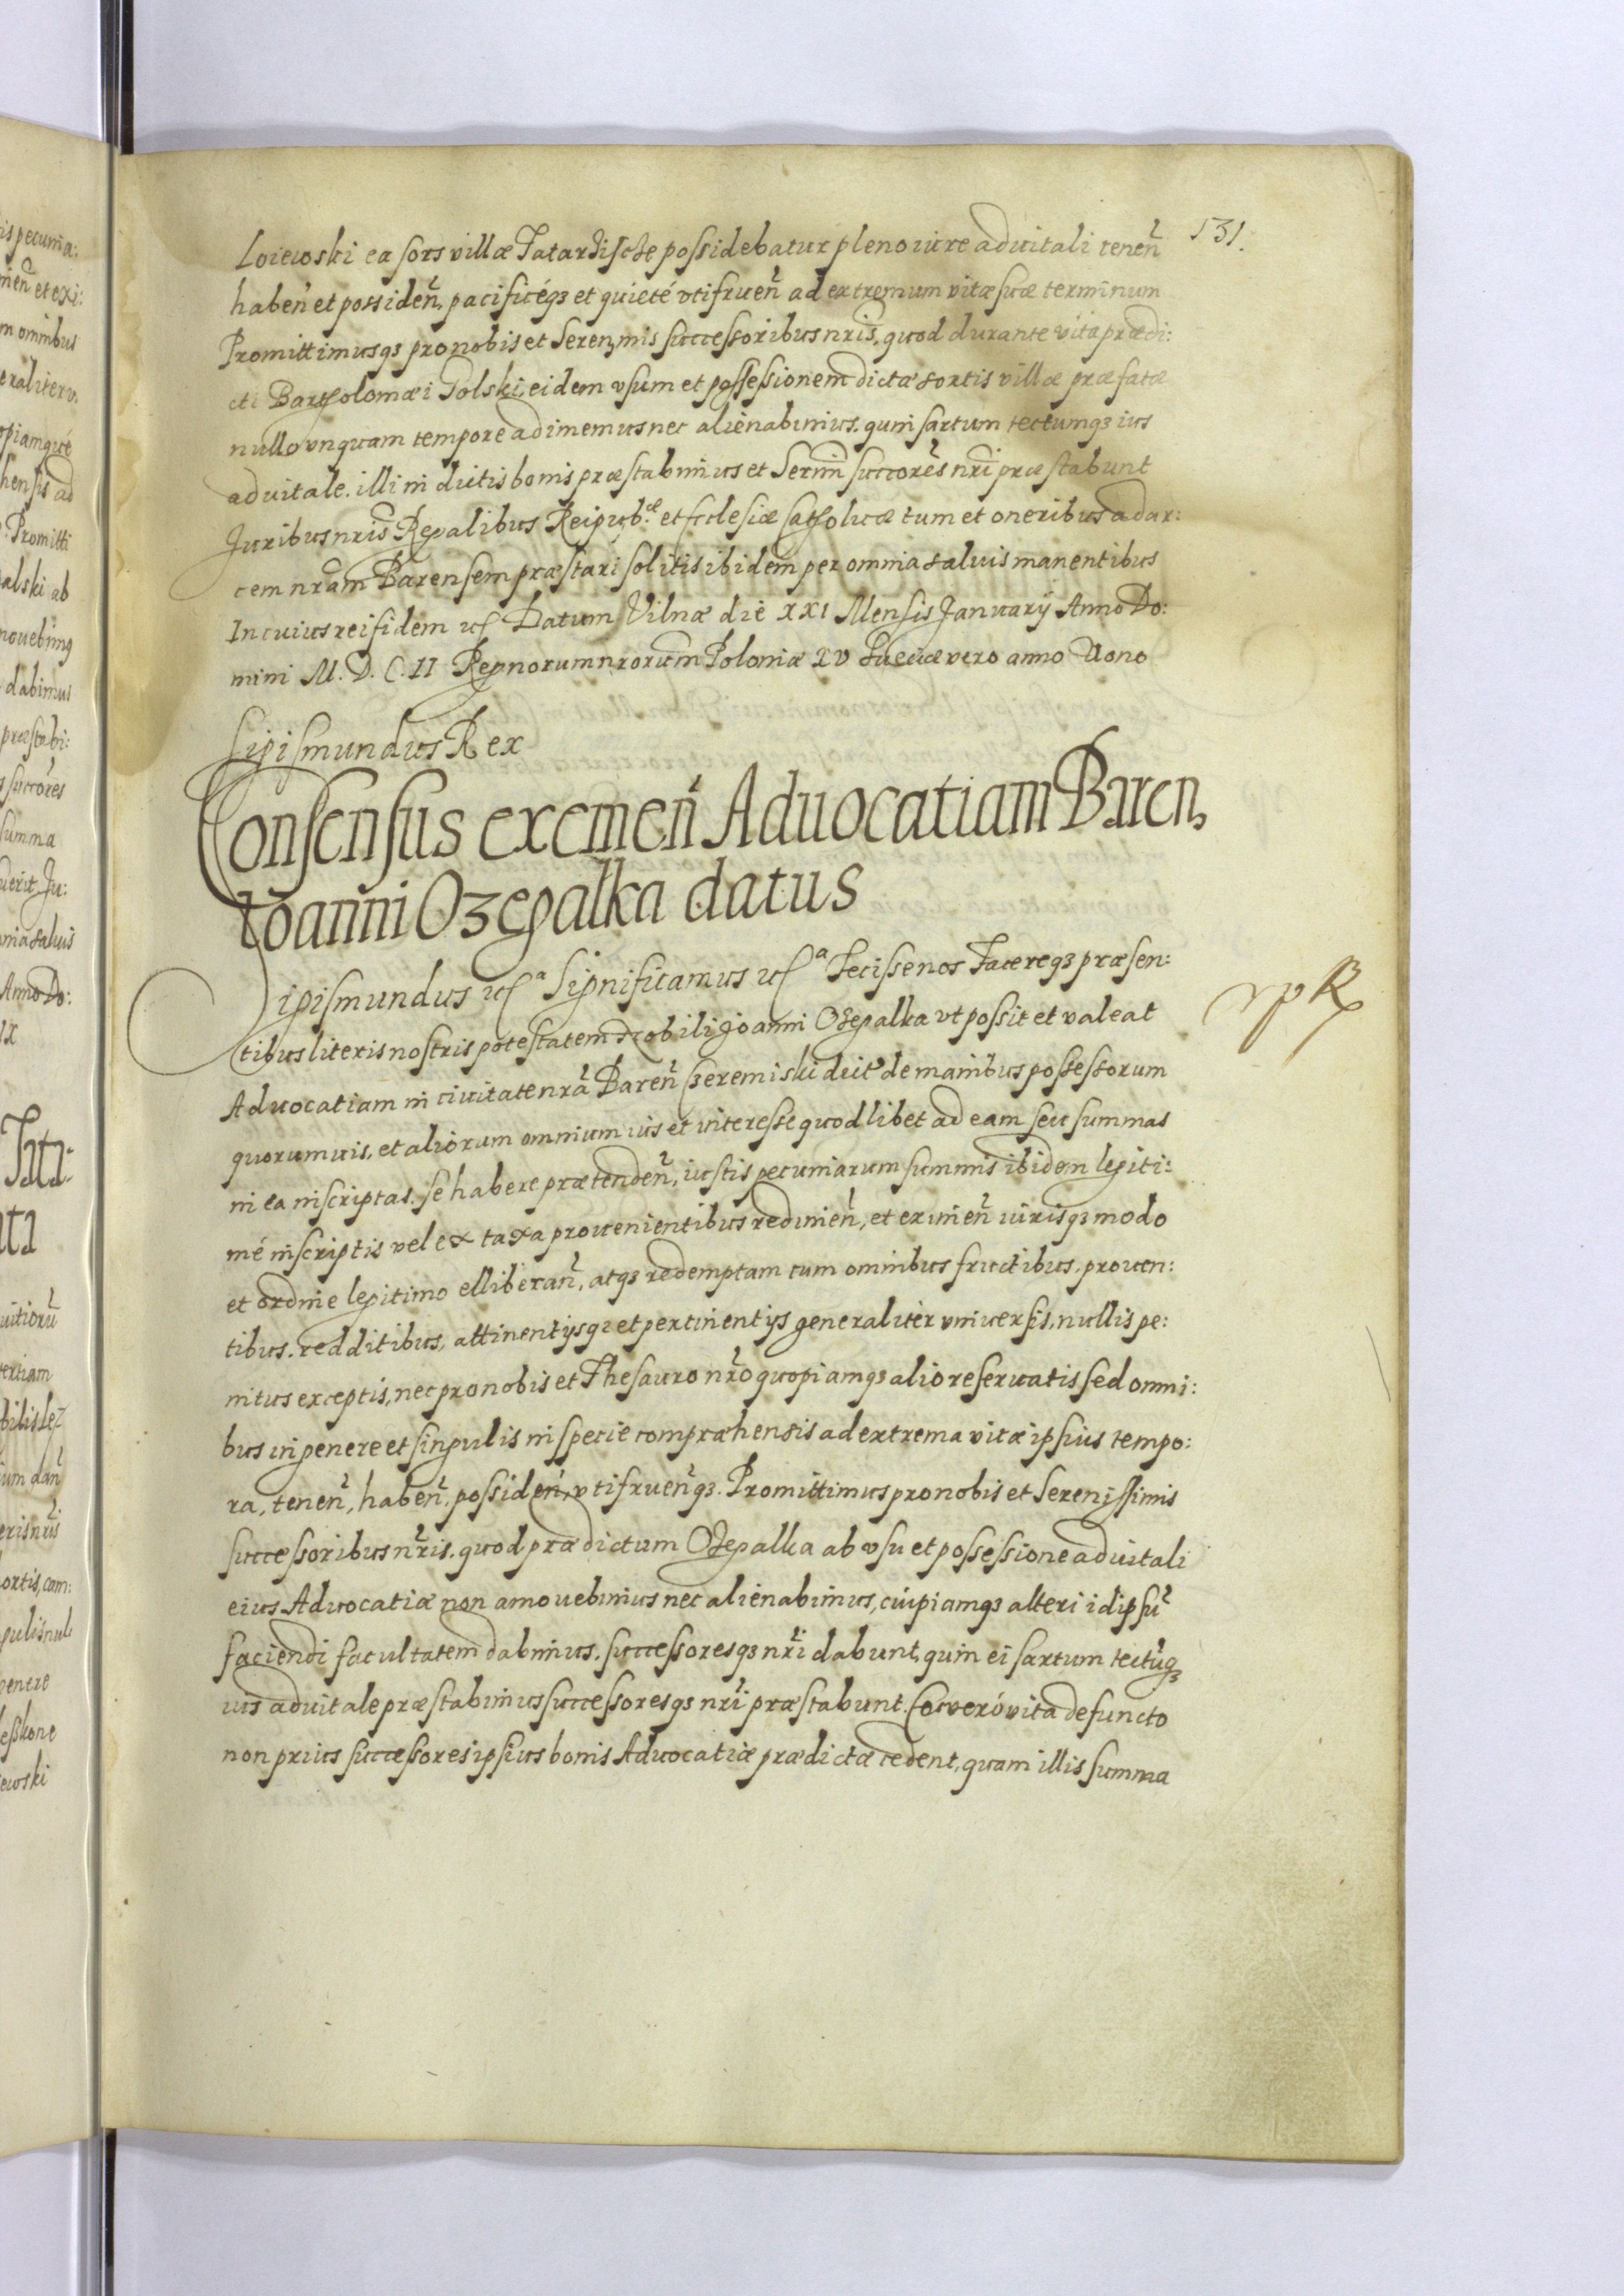 131.
Loiewoski ea sors villæ Tatardische possidebatur pleno iure aduitali tenen̄
haben̄ et possiden̄, pacificéqȝ et quieté vtifruen̄ ad extremum vitæ suæ terminum
Promittimusqȝ pro nobis et Seren̄mis successoribus nr̄is, quod durante vita prædi:
cti Bartholomæi Polski, eidem vsum et possessionem dictæ sortis villæ præfatæ
nullo vnquam tempore adimemus nec alienabimus. quin sartum tectumqȝ ius
aduitale. illi in dictis bonis præstabimus et Serm̄i succores nr̄i præstabunt
Juribus nr̄is Regalibus Reipub.æ et Ecclesiæ Catholicæ tum et oneribus ad ar:
cem nr̄am Barensem præstari solitis ibidem per omnia saluis manentibus
In cuius rei fidem etc Datum Vilnæ die XXI Mensis Januarij Anno Do:
mini M.D.C.II Regnorum nr̄orum Poloniæ XV Sueciæ vero anno Nono
Sigismundus Rex
Consensus eximen̄ Aduocatiam Baren,
Ioanni Ozegalka datus
Sigismundus etc a Significamus etc a Fecisse nos Facereqȝ præsen:
tibus literis nostris potestatem Nobili Joanni Ozegalka vt possit et valeat
Aduocatiam in ciuitate nr̄a Baren̄ Czeremiski dict de manibus possessorum
quorumuis, et aliorum omnium ius et interesse quodlibet ad eam seu summas
in ea inscriptas. se habere prætenden̄, iustis pecuniarum summis ibidem legiti:
mé inscriptis vel ex taxa prouenientibus redimen̄, et eximen̄ iurisqȝ modo
et ordine legitimo elliberan̄, atqȝ redemptam cum omnibus fructibus, prouen:
tibus. redditibus, attinentijsqȝ et pertinentijs generaliter vniuersis, nullis pe:
nitus exceptis, nec pro nobis et Thesauro nr̄o quopiamqȝ alio reseruatis sed omni:
bus in genere et singulis in specie compræhensis ad extrema vitæ ipsius tempo:
ra, tenen̄, haben̄, possiden̄, vtifruen̄qȝ. Promittimus pro nobis et Serenissimis
successoribus nr̄is. quod prædictum Ozegalka ab vsu et possessione aduitali
eius Aduocatiæ non amouebimus nec alienabimus, cuipiamqȝ alteri id ipsū
faciendi facultatem dabimus. successoresqȝ nr̄i dabunt, quin ei sartum tectūqȝ
ius aduitale præstabimus successoresqȝ nr̄i præstabunt. Eo veró vita defuncto
non prius successores ipsius bonis Aduocatiæ prædictæ cedent, quam illis summa